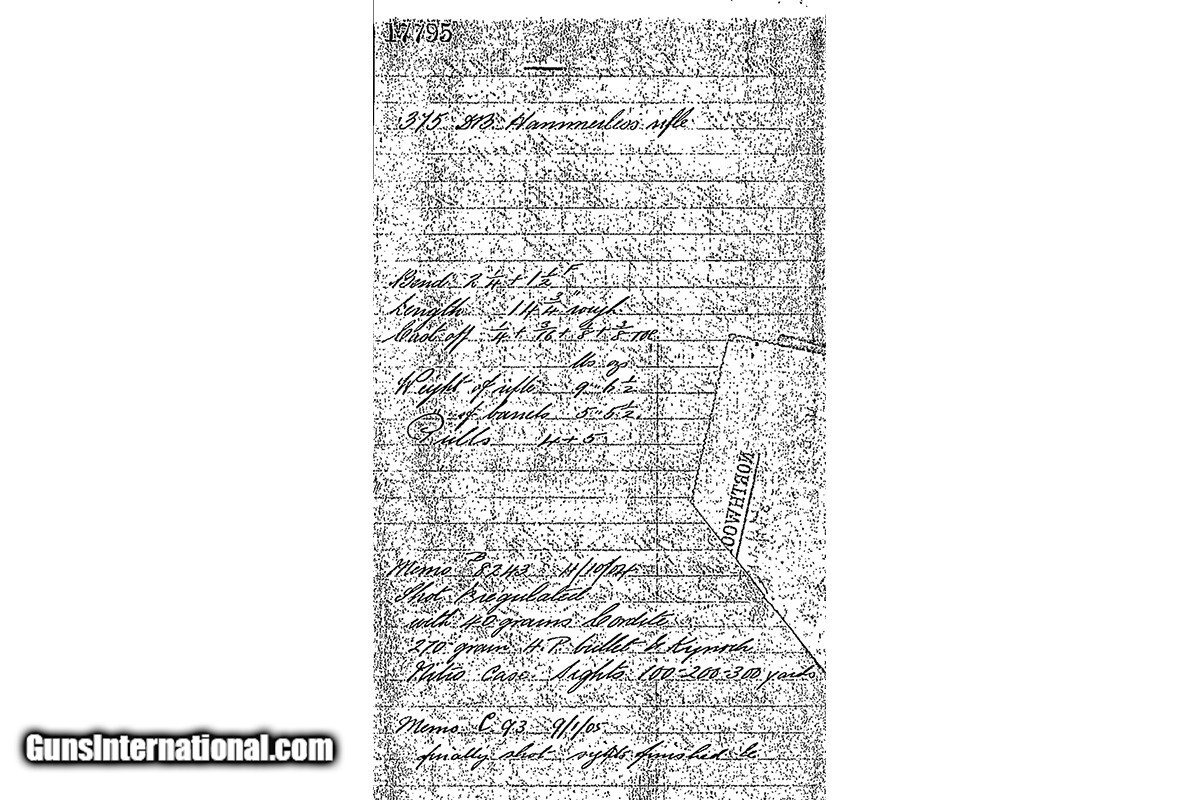 17795
.375 DB Hammerless rifle
Bend 2 1/4 + 1 1/2 F
Length 14 3/4 rough
Cast off 1/4 + 3/16 + 3/8 + 3/8 toe
lbs ozs
Weight of rifle 9 " 6 1/2
" of barrels 5 " 5 1/2
Pulls 4 + 5
NORTHWOO
Memo B 8243 4/10/04
Shot & regulated
with 40 grains Cordite
270 grain H.P. bullet & Kynoch
Nitro Case. Sights 100-200-300 yards
Memo C 93 9/1/05
finally shot sights finished &c
GunsInternational.com